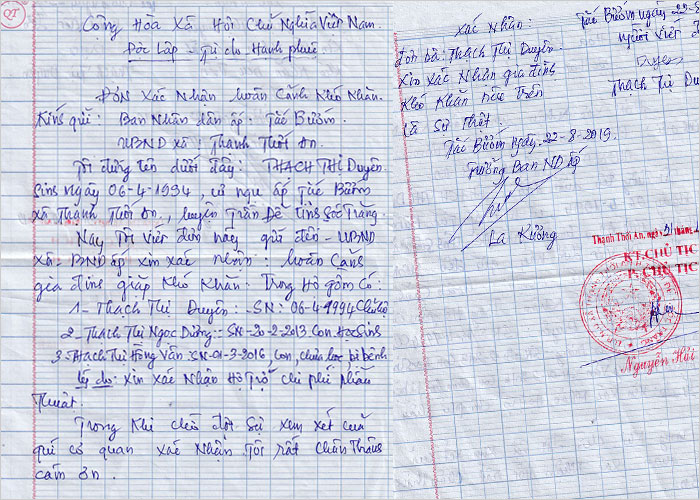 QT
Cộng Hòa Xã Hội Chủ Nghĩa Việt Nam.
Độc Lập - Tự do Hạnh phúc
ĐƠN Xác Nhận hoàn Cảnh Khó Khăn.
Kính gửi: Ban Nhân dân ấp. Tắc Bướm.
UBND xã: Thạnh Thới An.
Tôi đứng tên dưới đây: THẠCH THỊ Duyên
Sinh ngày 06-4-1994, cư ngụ ấp Tắc Bướm
xã Thạnh Thới An, huyện Trần Đề tỉnh Sóc Trăng
Nay Tôi viết đơn này gửi đến - UBND
xã - BND ấp xin xác nhận: hoàn Cảnh
gia đình gặp Khó Khăn. Trong Hộ gồm Có:
1 - Thạch Thị Duyên: - SN: 06-4-1994 Chủ hộ
2 - Thạch Thị Ngọc Dững: - SN-20-2-2013 Con Học Sinh
3. Thạch Thị Hồng Vân: SN-01-3-2016, Con, chưa học, bị bệnh
Lý do: xin xác Nhận Hộ Trợ chi phí phẫu
Thuật.
Trong Khi chờ đợi Sự xem xét của
quí cơ quan xác Nhận Tôi rất Chân Thành
cảm ơn.
Xác Nhận:
đơn bà: Thạch Thị Duyên.
xin xác Nhận gia đình
Khó Khăn nêu Trên
Là Sự Thật.
Tắc Bướm ngày 22-8-2019.
Trưởng Ban ND ấp
La Kưởng
Tắc Bướm ngày 22-8
người viết
Duyên
Thạch Thị Du
Thạnh Thới An, ngày
KT.CHỦ TỊC
P.CHỦ TỊC
Nguyễn Hải